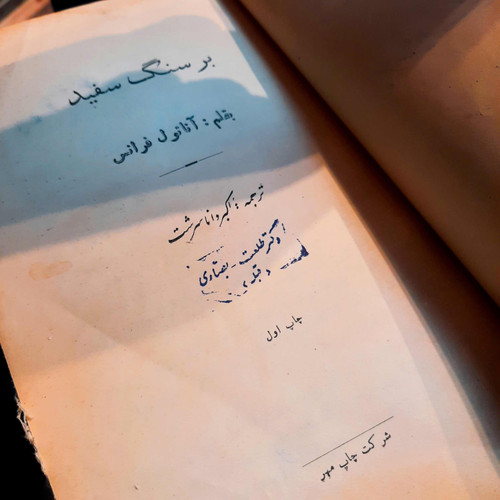 بر سنگ سفید
بقلم : آناتول فرانس
ترجمه : اکبر داناسرشت
دکتر طلعت - بصاری
چاپ اول
شرکت چاپ میهر